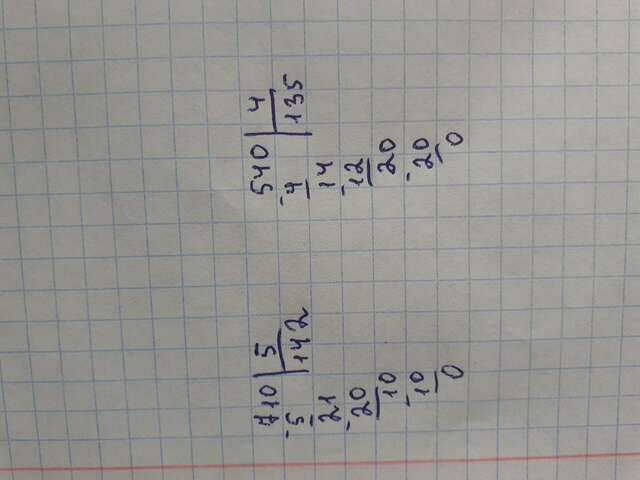 710 | 5
-5 | 142
21
-20
10
-10
0
540 | 4
-4 | 135
14
-12
20
-20
0